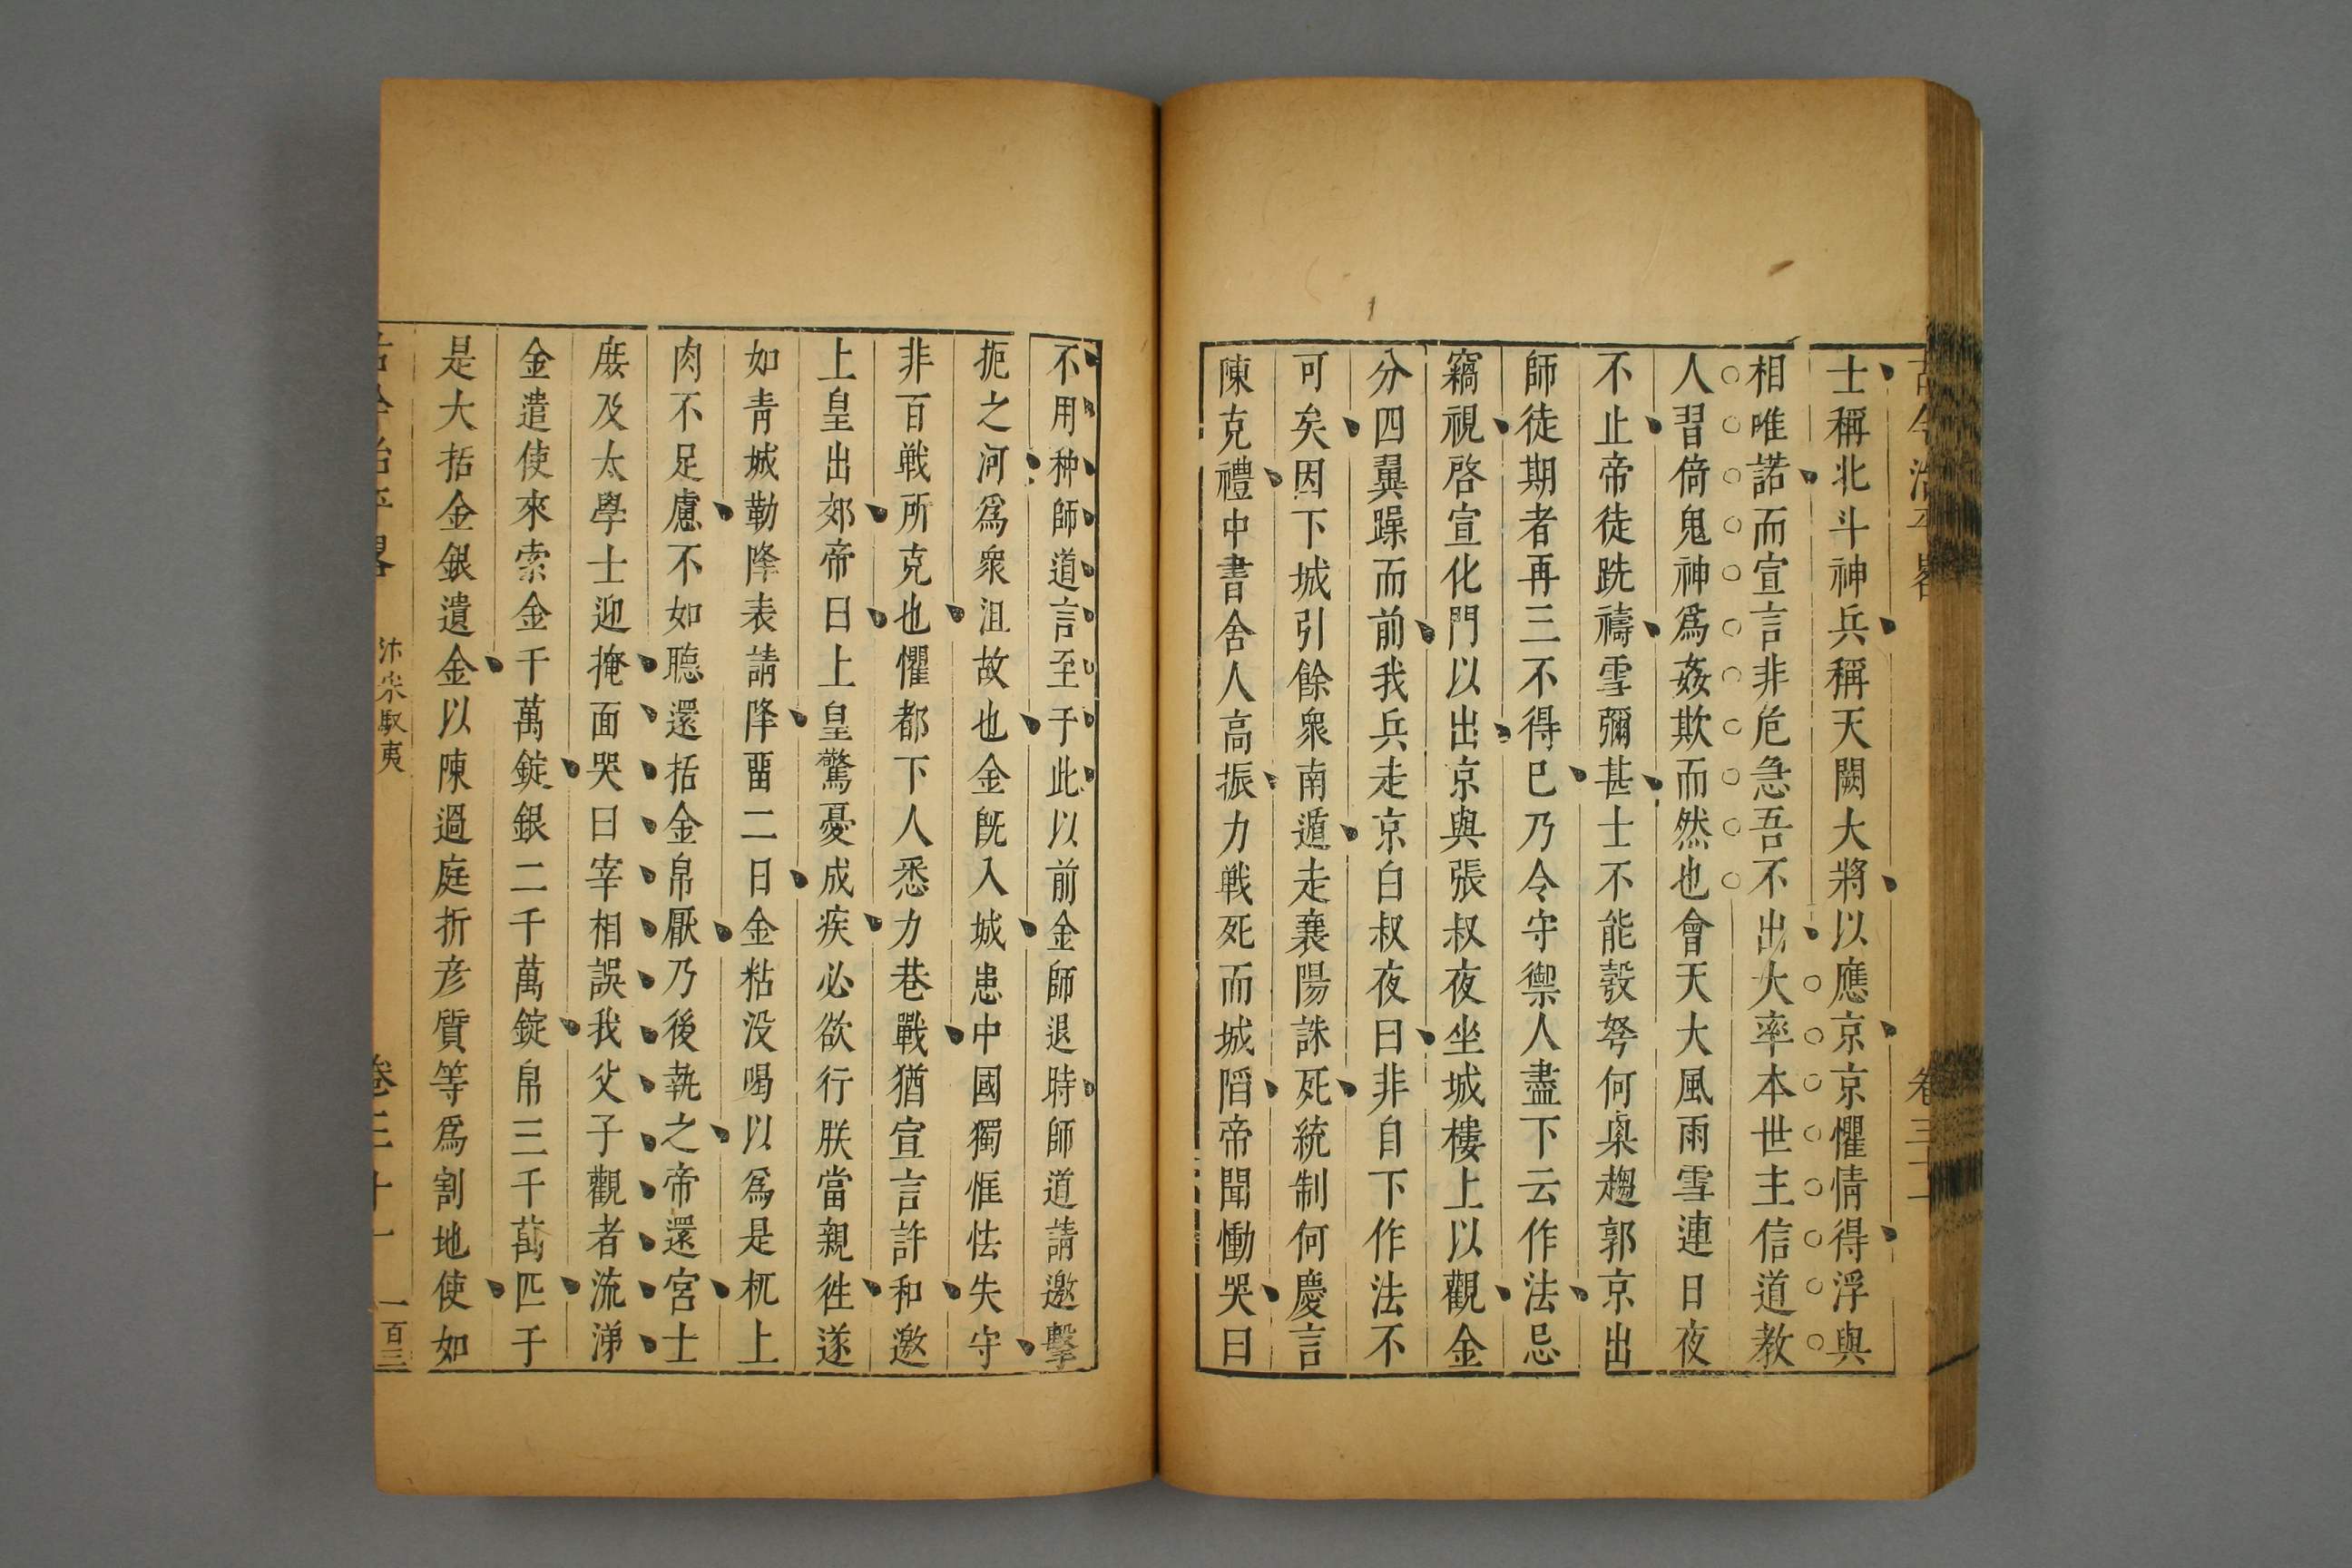 士稱北斗神兵稱天闕大將以應京京懼情得浮與
相唯諾而宣言非危急吾不出大率本世主信道教
人習倚鬼神爲姦欺而然也會天大風雨雪連日夜
不止帝徒跣禱雪彌甚士不能彀弩何㮚趨郭京出
師徒期者再三不得已乃令守禦人盡下云作法忌
竊視啓宣化門以出京與張叔夜坐城樓上以觀金
分四翼躁而前我兵走京白叔夜曰非自下作法不
可矣因下城引餘衆南遁走襄陽誅死統制何慶言
陳克禮中書舍人高振力戰死而城䧟帝聞慟哭曰
不用种師道言至于此以前金師退時師道請邀擊
扼之河爲衆沮故也金旣入城患中國獨恇怯失守
非百戰所克也懼都下人悉力巷戰猶宣言許和邀
上皇出郊帝曰上皇驚憂成疾必欲行朕當親徃遂
如青城勒降表請降畱二日金粘没喝以爲是杌上
肉不足慮不如聽還括金帛厭乃後執之帝還宮士
庻及太學士迎掩面哭曰宰相誤我父子觀者流涕
金遣使來索金千萬錠銀二千萬錠帛三千萬匹于
是大括金銀遺金以陳過庭折彦質等爲割地使如
汴宋馭夷
一百三